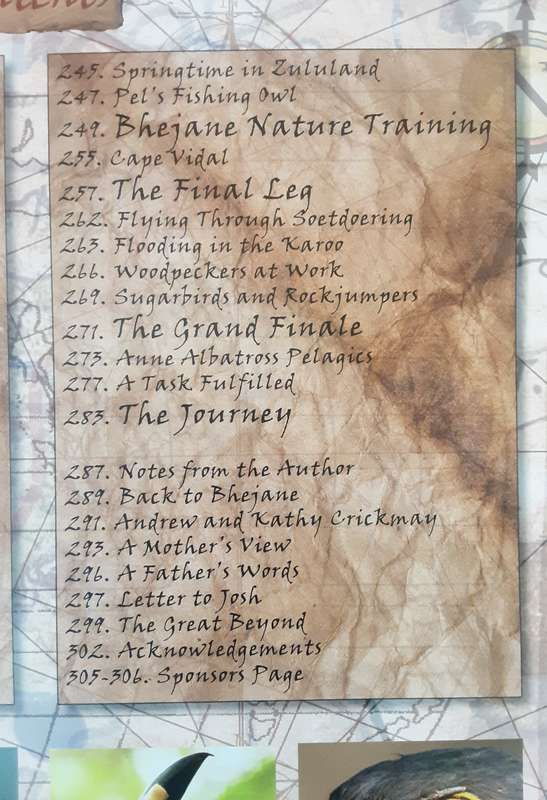 245. Springtime in Zululand
247. Pel's Fishing Owl
249. Bhejane Nature Training
255. Cape Vidal
257. The Final Leg
262. Flying Through Soetdoering
263. Flooding in the Karoo
266. Woodpeckers at Work
269. Sugarbirds and Rockjumpers
271. The Grand Finale
273. Anne Albatross Pelagics
277. A Task Fulfilled
283. The Journey
287. Notes from the Author
289. Back to Bhejane
291. Andrew and Kathy Crickmay
293. A Mother's View
296. A Father's Words
297. Letter to Josh
299. The Great Beyond
302. Acknowledgements
305-306. Sponsors Page